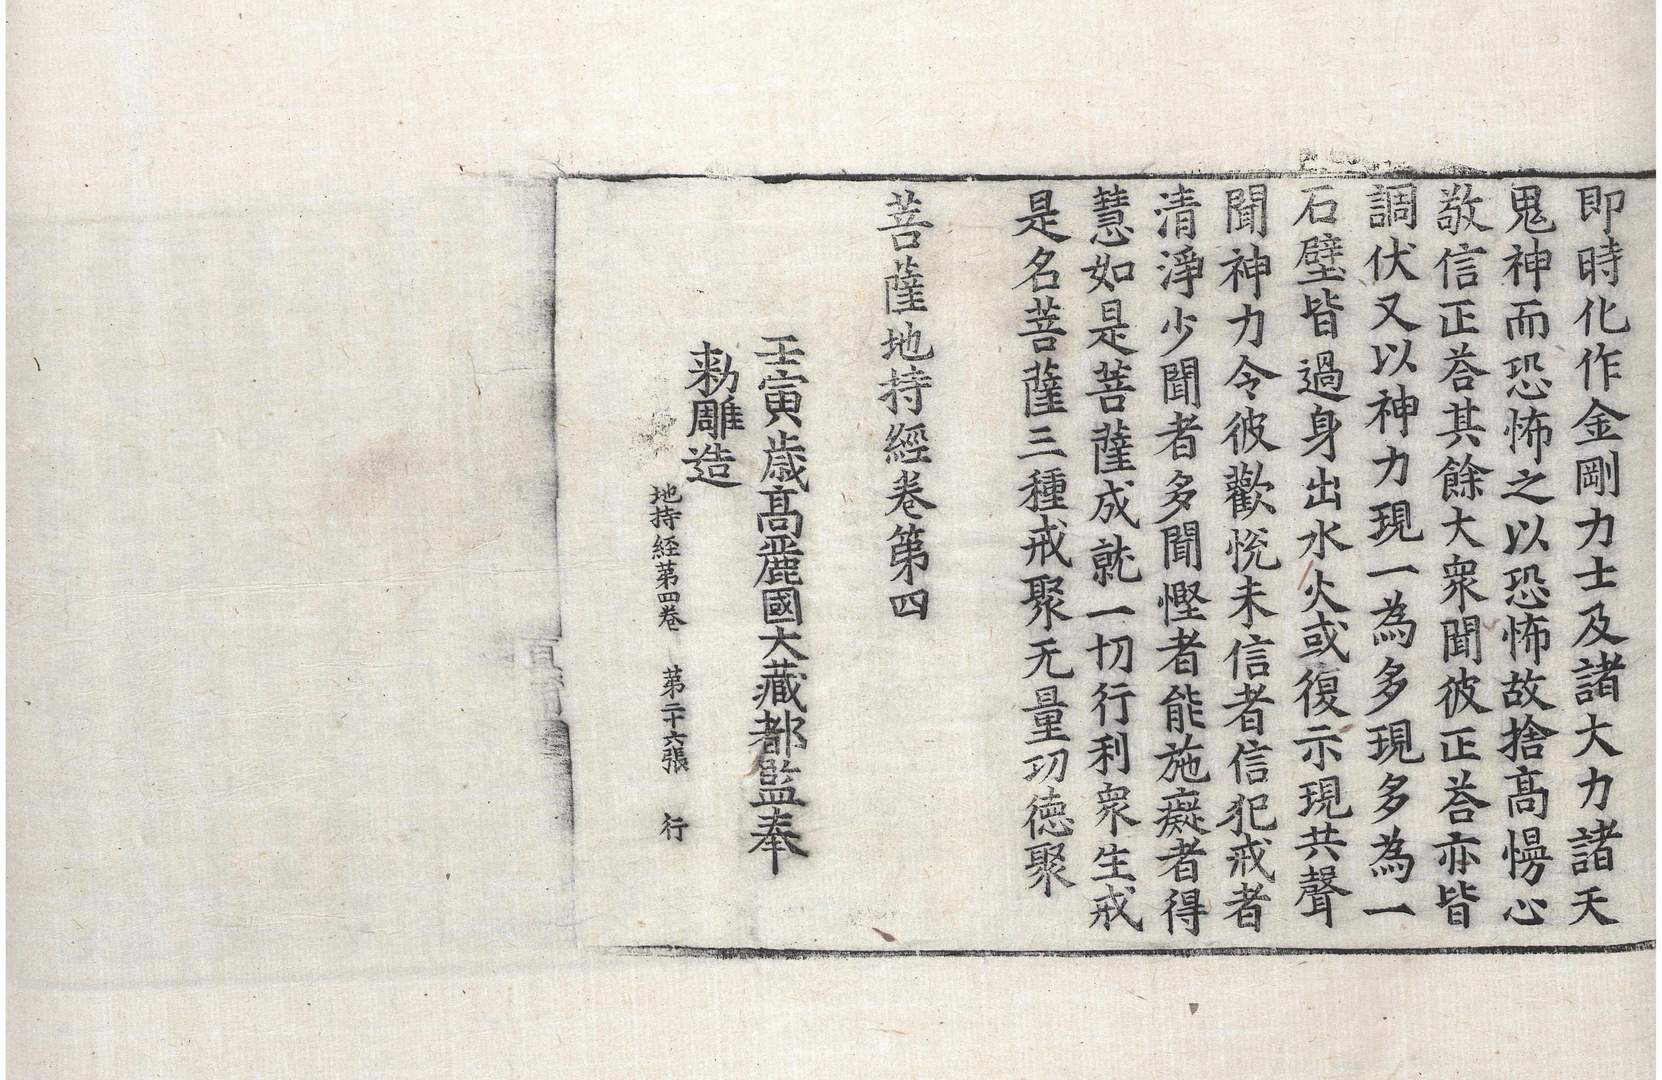 即時化作金剛力士及諸大力諸天
鬼神而恐怖之以恐怖故捨髙慢心
敬信正荅其餘大衆聞彼正荅亦皆
調伏又以神力現一為多現多為一
石壁皆過身出水火或復示現共聲
聞神力令彼歡悅未信者信犯戒者
清淨少聞者多聞慳者能施癡者得
慧如是菩薩成就一切行利衆生戒
是名菩薩三種戒聚无量功德聚
菩薩地持經卷第四
壬寅歲髙麗國大藏都監奉
勑雕造
地持経第四卷 第二十六張 行